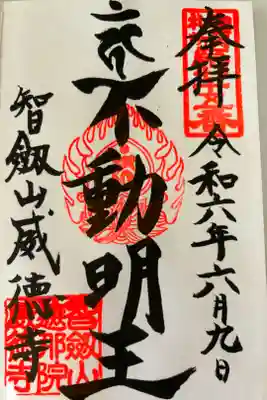 奉拝
令和六年六月九日
不動明王
智剱山威徳寺